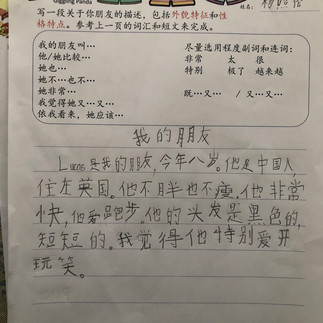 姓名:
写一段关于你朋友的描述,包括外貌特征和性
格特点。参考上一页的词汇和短文来完成。
我的朋友叫…
他/她比较…
她也…
她不…也不…
她非常…
我觉得她又…又…
依我看来,她应该…
尽量选用程度副词和连词:
非常 太 很
特别 极了 越来越
既…又… / 又…又…
我的朋友
Lucas是我的朋友,今年八岁。他是中国人
住在英国。他不胖也不瘦,他非常
快,他爱跑步,他的头发是黑色的,
短短的。我觉得他特别爱开
玩笑。